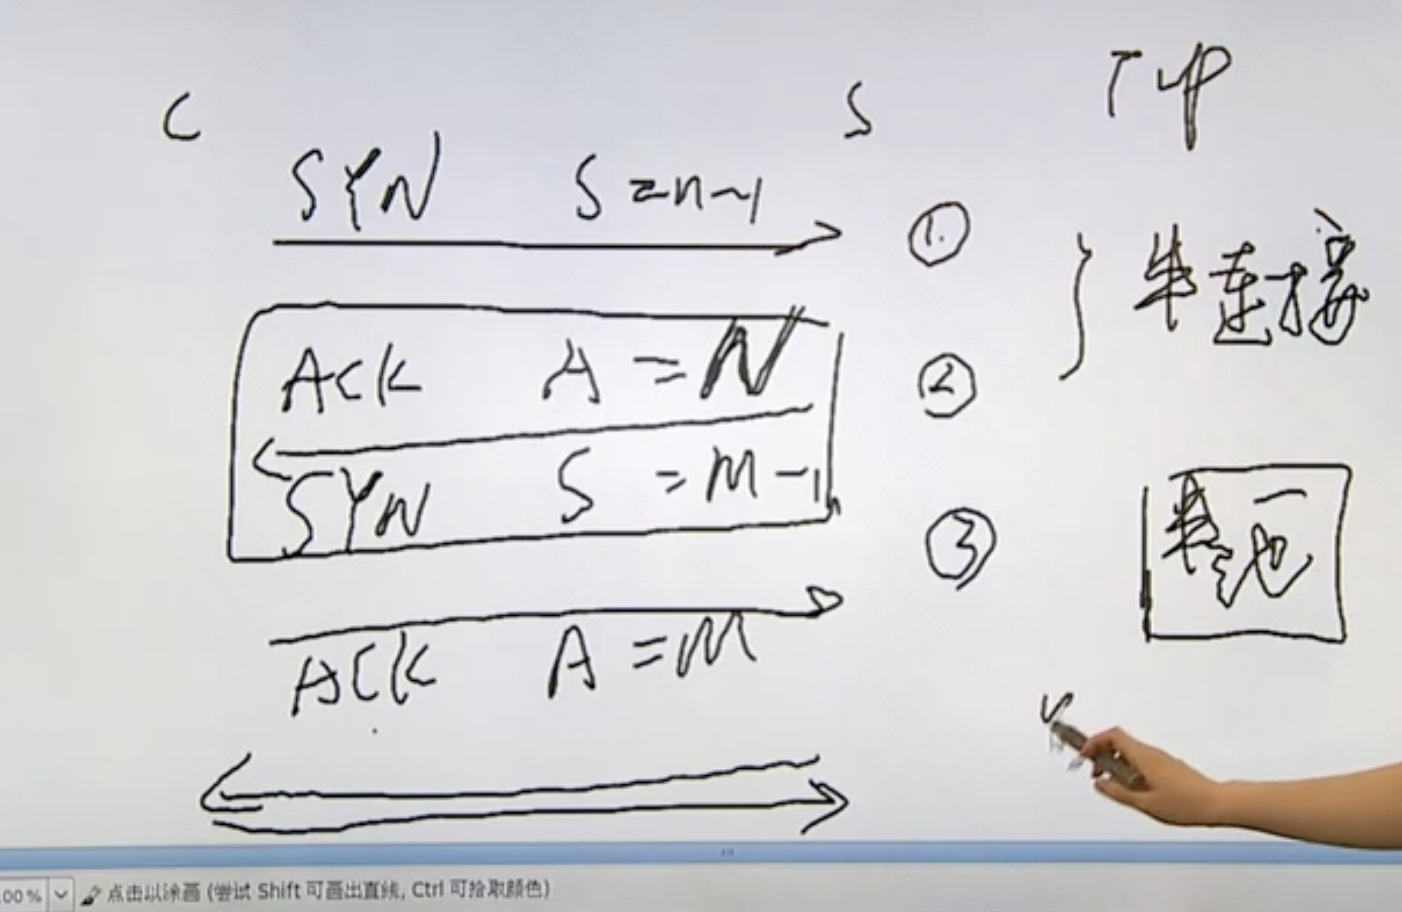 C S TCP
SYN S=n-1 ①
半连接
ACK A=N ②
SYN S=M-1
③
半连
池
ACK A=M
00% 点击以涂画 (尝试 Shift 可画出直线, Ctrl 可拾取颜色)